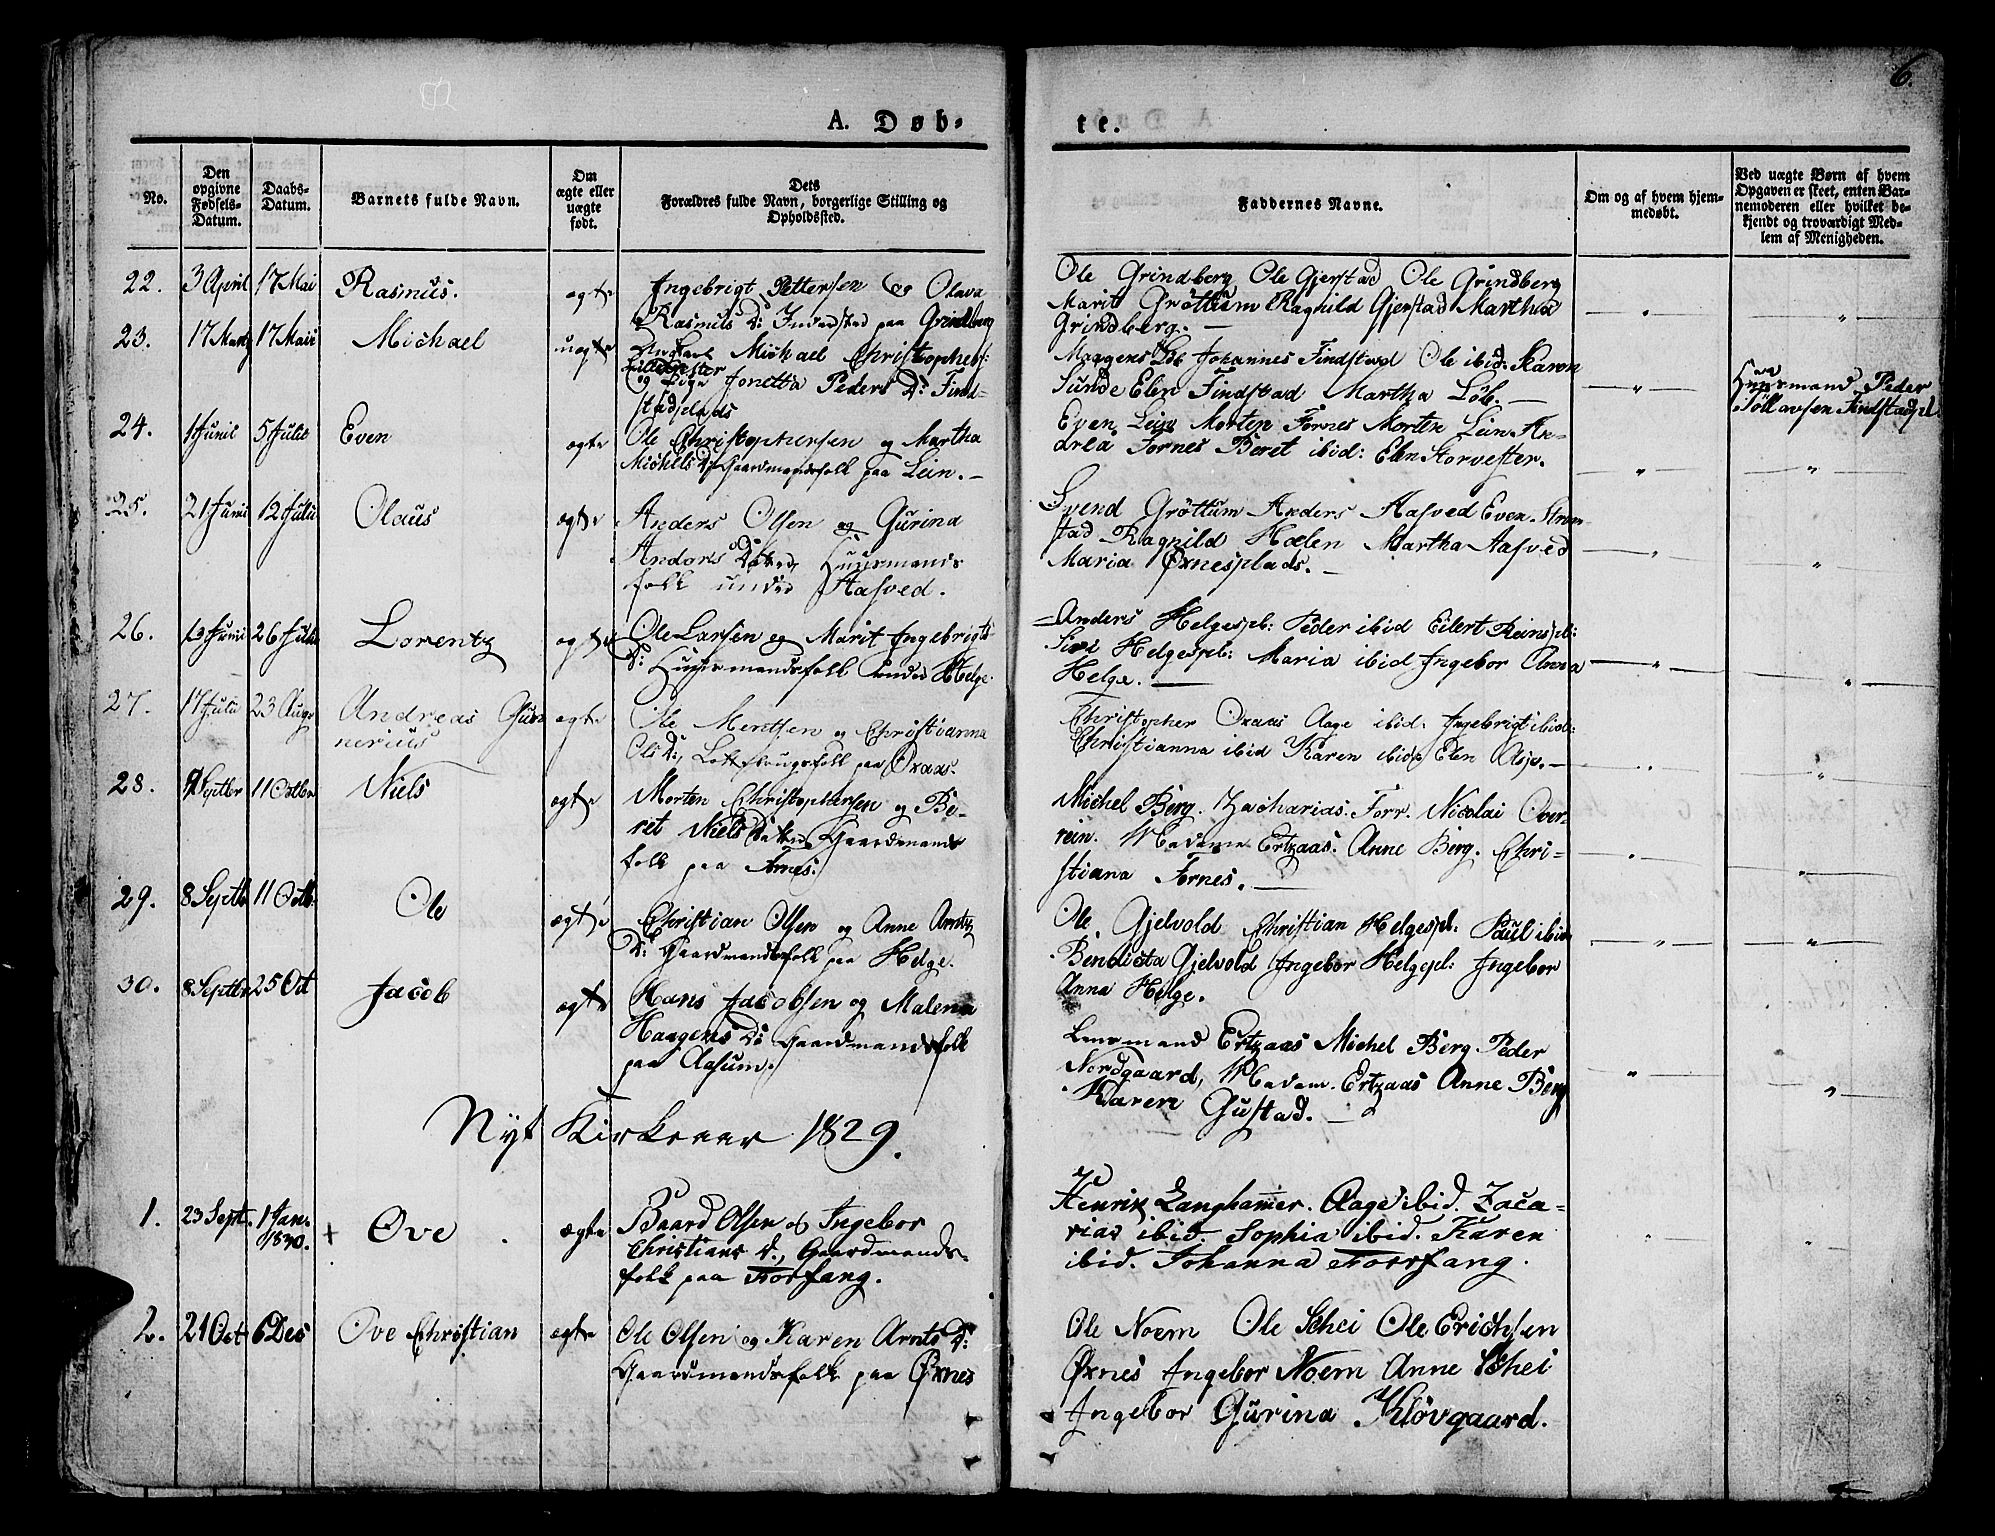 6.
A. Døb-
te.
No.
Den opgivne Fødsels-Datum.
Daabs-Datum.
Barnets fulde Navn.
Om ægte eller uægte født.
Dets Forældres fulde Navn, borgerlige Stilling og Opholdssted.
Faddernes Navne.
Om og af hvem hjemmedøbt.
Ved uægte Børn af hvem Opgaven er skeet, enten Barnemoderen eller hvilket bekjendt og troværdigt Medlem af Menigheden.
22. 3 April 17 Mai Rasmus. ægte
Ingebrigt Pettersen og Olava
Rasmus D: Inderster paa Grindberg
Ole Grindberg Ole Gjerstad Ole Grindberg
Marit Gröttum Ragnild Gjerstad Martha
Grindberg. —
23. 17 Marty 17 Mai Michael uægte
Ungkarl Michael Christophers:
og Pige Jonetta Peders D: Find-
stadplads
Maggens Löb Johannes Findstad Ole ibid: Karen
Sunde Elen Findstad Martha Löb. —
Huusmand Peder
Tollavsen Findstadpl.
24. 1 Junii 5 Julii Even ægte
Ole Christophersen og Martha
Michels D: Gaardmandsfolk paa Lein. —
Even Lein Morten Fornes Morten Lein An-
drea Fornes Beret ibid: Elen Storvester.
25. 21 Junii 12 Julii Olaus ægte
Anders Olsen og Gurina
Andors Datter, Huusmands
folk under Aasved.
Svend Gröttum Anders Aasved Even Strm-
stad Ragnild Hælen Martha Aasved
Maria Øxnesplads. —
26. 13 Junii 26 Julii Lorentz ægte
Ole Larsen og Marit Ingebrigts
D: Huusmandsfolk under Helge.
Anders Helgespl: Peder ibid Eilert Reinspl:
Siri Helgespl: Maria ibid Ingebor Anna
Helge. —
27. 17 Julii 23 Augs Andreas Gun-
nerius ægte
Ole Mentsen og Christianna
Ols D:, paa Oxaas.
Christopher Oxaas Aage ibid. Ingebrigt ibid:
Christianna ibid Karen ibid Elen Asp. —
28. 9 Septbr 11 Octbr Niels ægte
Morten Christophersen og Be-
ret Niels Datter, Gaardmands
folk paa Fornes.
Michel Berg. Zacharias Forr. Nicolai Over-
rein. Madame Ertzaas. Anne Berg. Chri-
stiana Fornes. —
29. 8 Septb 11 Octb. Ole ægte
Christian Olsen og Anne Arntz
D: Gaardmandsfolk paa Helge.
Ole Gjelvold Christian Helgespl: Paul ibid
Bendicta Gjelvold Ingebor Helgepl: Ingebor
Anna Helge.
30. 8 Septbr 25 Oct Jacob ægte
Hans Jacobsen og Malena
Haagens D: Gaardmandsfolk
paa Aasum.
Lensmand Ertzaas Michel Berg Peder
Nordgaard, Madam. Ertzaas Anne Berg
Karen Gustad. —
Nyt Kirkeaar 1829.
1. 23 Sept. 1 Jan. 1830. + Ove. ægte
Baard Olsen og Ingebor
Christians D., Gaardmands-
folk paa Forfang.
Henrik Langhammer. Aage ibid. Zaca-
rias ibid. Sophia ibid. Karen
ibid. Johanna Forrfang.
2. 21 Oct 6 Des Ove Christian ægte
Ole Olsen og Karen Arnts D:
Gaardmandsfolk paa Øxnes
Ole Noem Ole Schei Ole Erichsen
Øxnes Ingebor Noem Anne Schei
Ingebor Gurina Klövgaard.